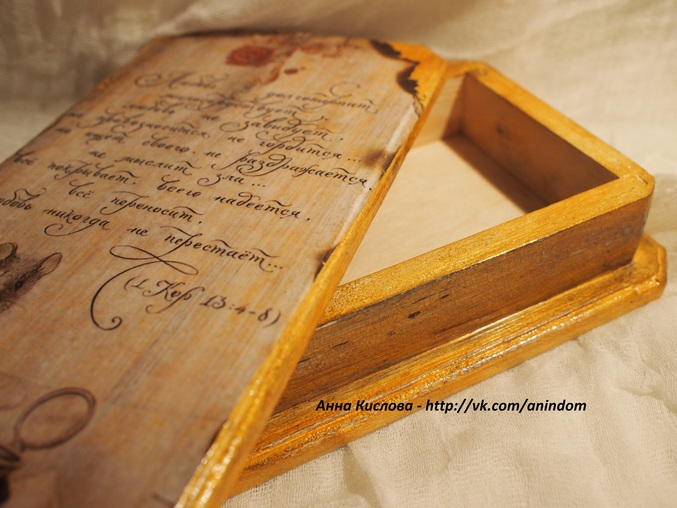 Любовь долготерпит,
милосердствует,
любовь не завидует,
не превозносится, не гордится...
не ищет своего, не раздражается,
не мыслит зла...
всё покрывает, всего надеется,
всё переносит.
Любовь никогда не перестаёт...
(1 Кор 13:4-8)
Анна Кислова - http://vk.com/anindom